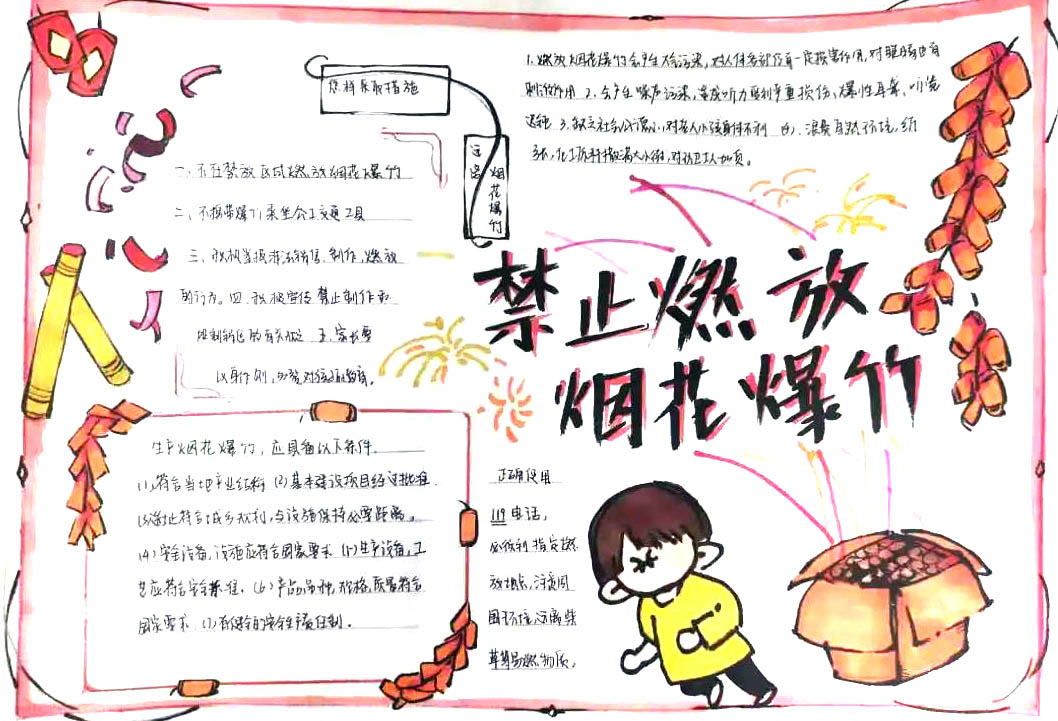 1、燃放烟花爆竹会产生大污染，对人体各部位有一定损害作用，对眼睛也有
刺激作用 2、会产生噪声污染，造成听力受到严重损伤，爆性耳聋、听觉
迟钝 3、缺乏社会公德心，对老人小孩身体不利 (4)、浪费自然环境，纸
对环卫工人加负。
怎样采取措施
远离
烟花爆竹
一、不在禁放区域燃放烟花爆竹
二、不携带爆竹乘坐公工交通工具
三、积极举报非法销售、制作，燃放
的行为。四、积极宣传禁止制作和
五、家长要
以身作则，
禁止燃放
烟花爆竹
生产烟花爆竹，应具备以下条件.
(1)符合当地产业结构 (2)基本建设项目经过批准
(3)选址符合城乡规划，与设施保持必要距离。
(4)安全设备，设施应符合国家要求 (5)生产设备，工
艺应符合安全标准. (6)产品品种，规格，质量符合
国家要求 (7)有健全的安全生产责任制。
正确使用
119电话，
必须到指定燃
放地点，注意周
围环境，远离柴
草等易燃物质。